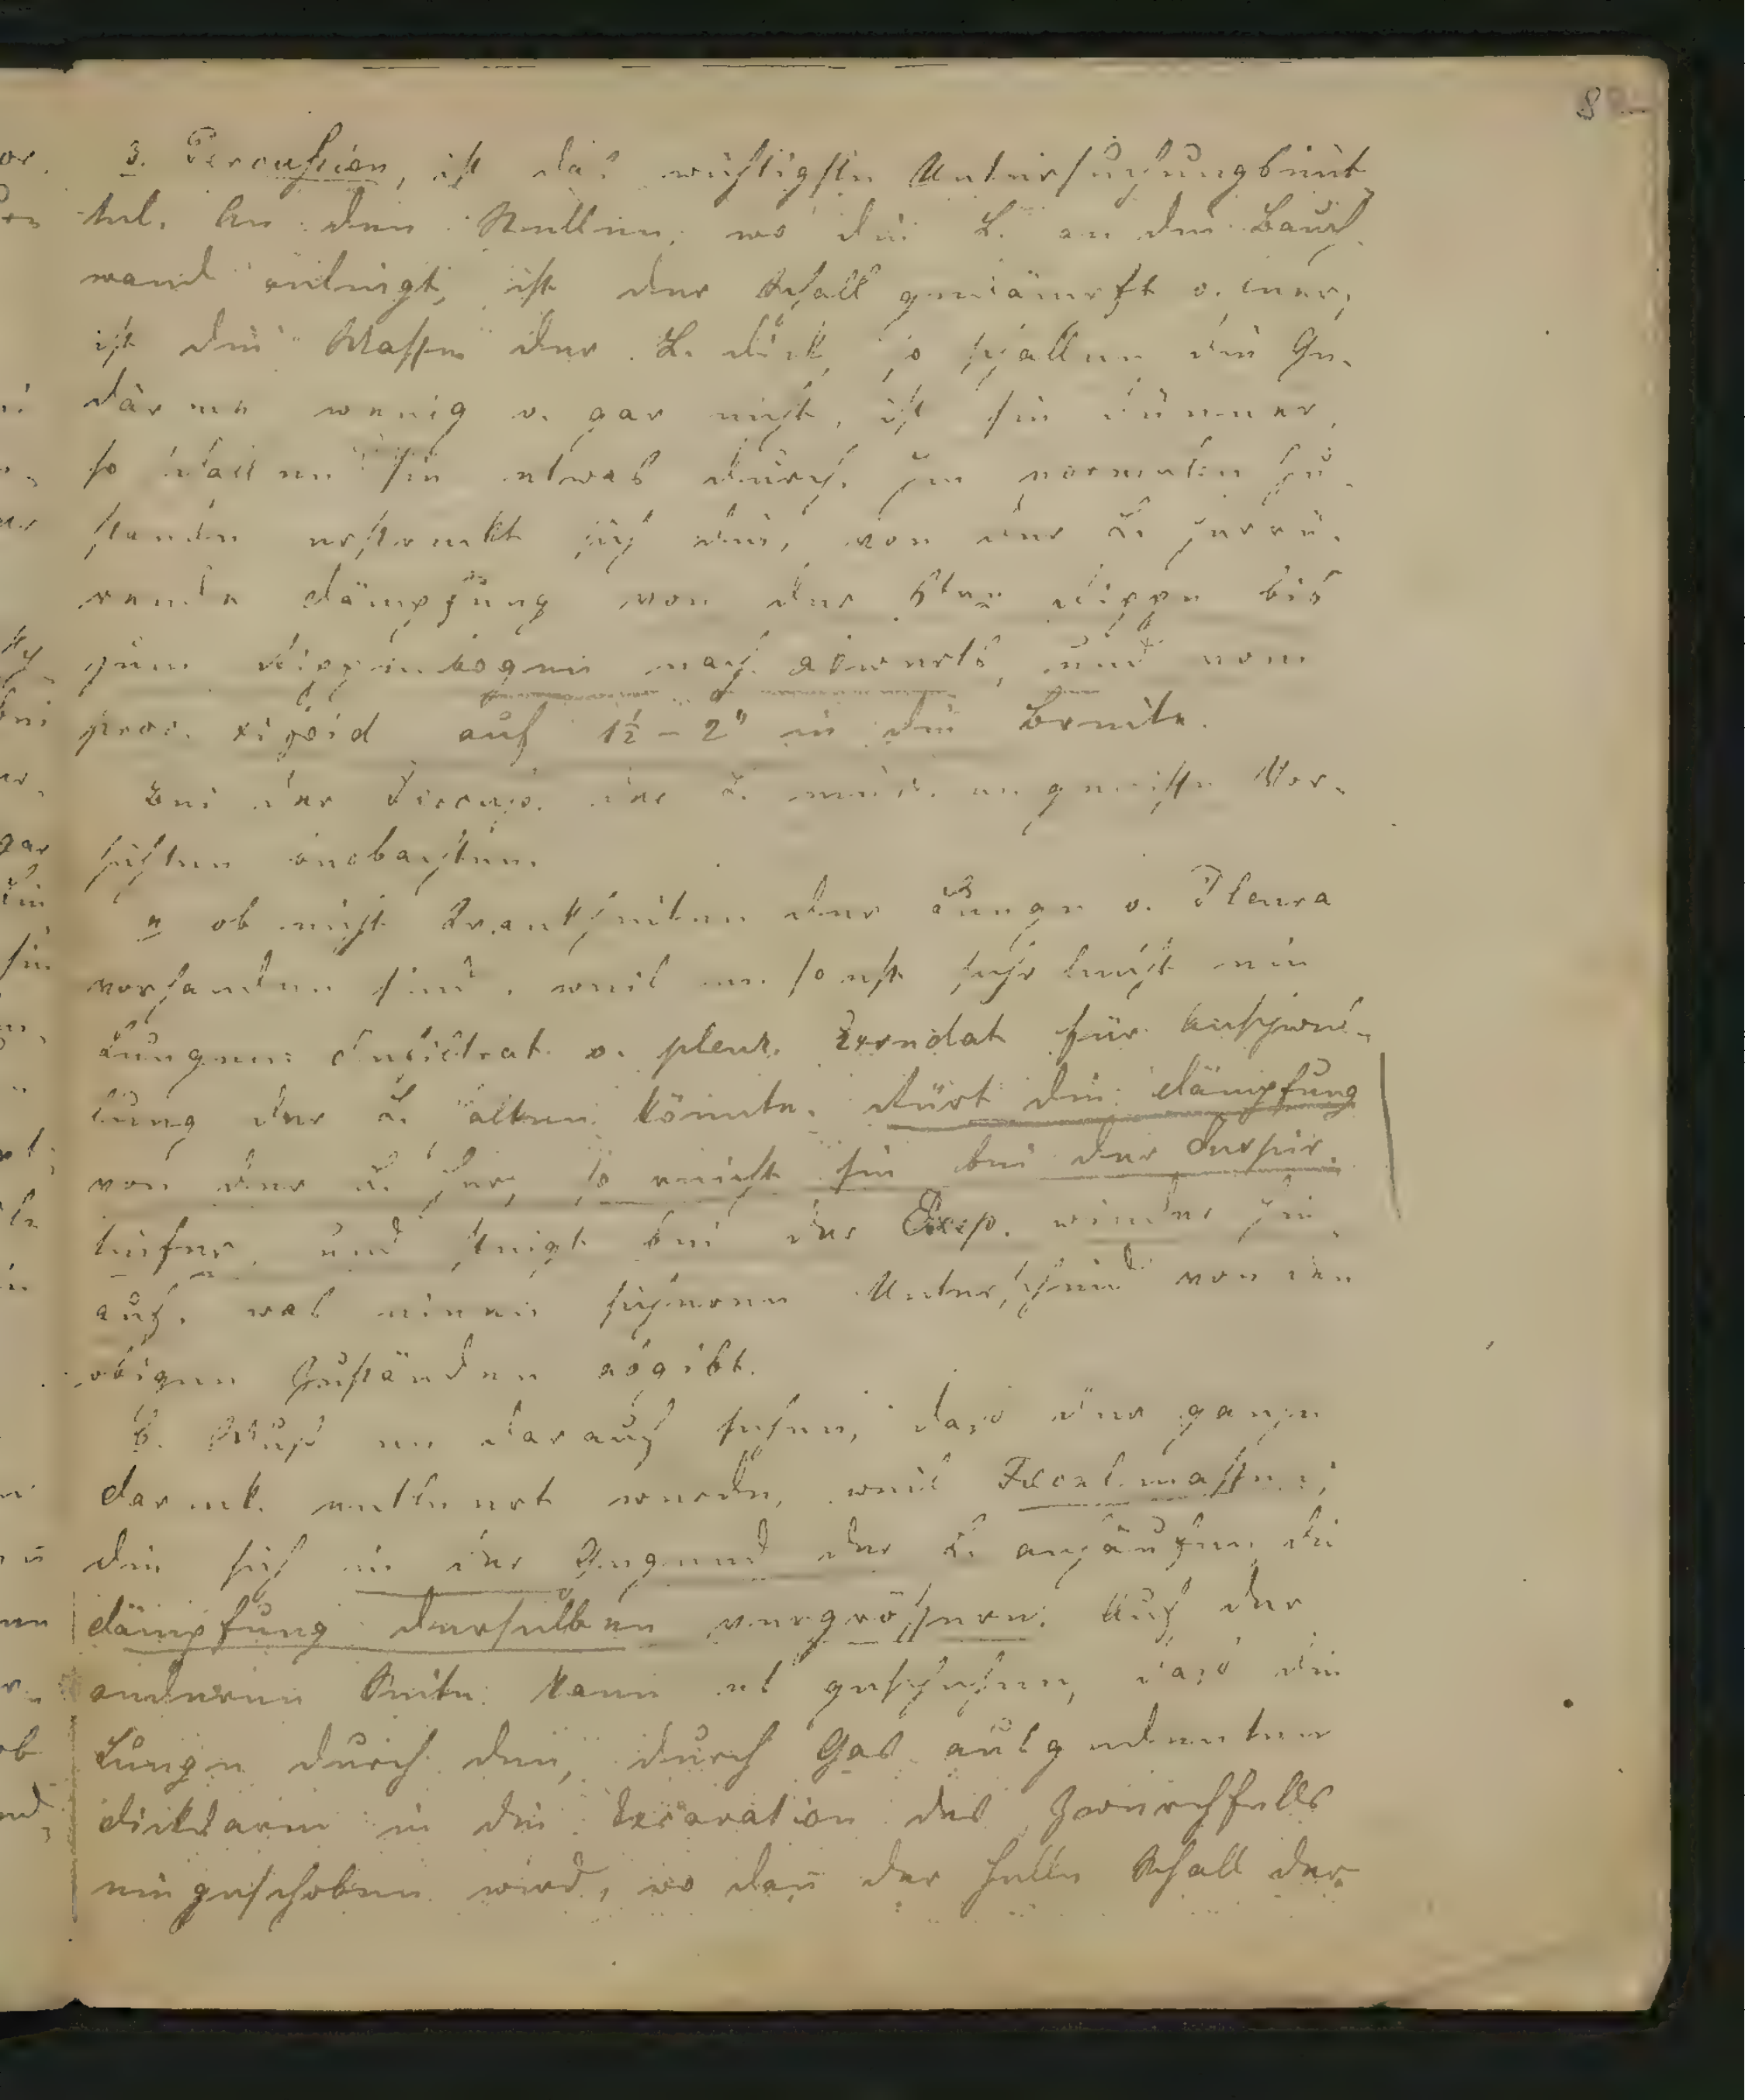 8
3. Percussion, ist das wichtigste Untersuchungsmit-
tel. An den Stellen, wo die L. an der Bauch
wand anliegt, ist der Schall gedämpft o. leer,
ist die Masse der L. dick, so schallen die Ge-
därme wenig o. gar nicht, ist sie dünner,
so schallen sie etwas durch. Im normalen Zu-
stande erstreckt sich die, von der L. herrü-
rende Dämpfung von der 6ten Rippe bis
zum Rippenbogen nach abwerts, und vom
proc. xiphoid auf 1½ – 2" in die Breite.
Bei der Percuss. der L. muss man gewisse Vor-
sichten beobachten.
a ob nicht Krankheiten der Lunge o. Pleura
vorhanden sind, weil m. sonst sehr leicht ein
Lungen Infiltrat o. pleur. Exsudat für Anschwel-
lung der L. halten könnte. Rürt die Dämpfung
von der L. her, so reicht sie bei der Inspir.
tiefer, und steigt bei der Exsp. wieder hin-
auf, was einen sicheren Unterschied von den
obigen Zuständen abgibt.
b. Muß m. darauf sehen, dass der ganze
Darmk. entleert werde, weil Faecalmassen,
die sich in der Gegend der L. anhäufen die
Dämpfung derselben vergrössern. Auf der
anderen Seite kann es geschehen, dass die
Lunge durch den, durch Gas ausgedenten
Dickdarm in die Excavation des Zwerchfells
eingeschoben wird, wo dan̄ der helle Schall der